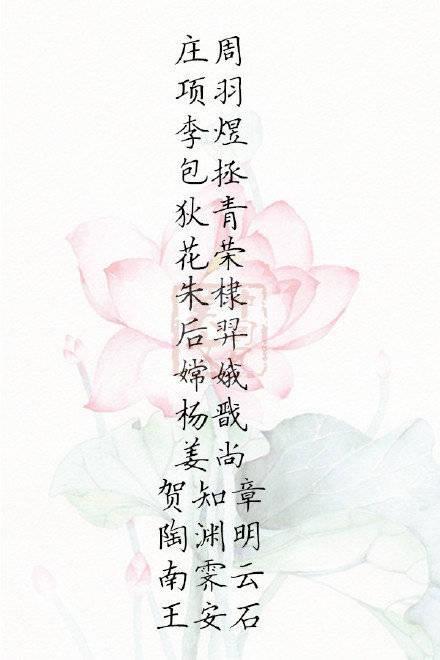 庄周
项羽
李煜
包拯
狄青
花荣
朱棣
后羿
嫦娥
杨戬
姜尚
贺知章
陶渊明
南霁云
王安石